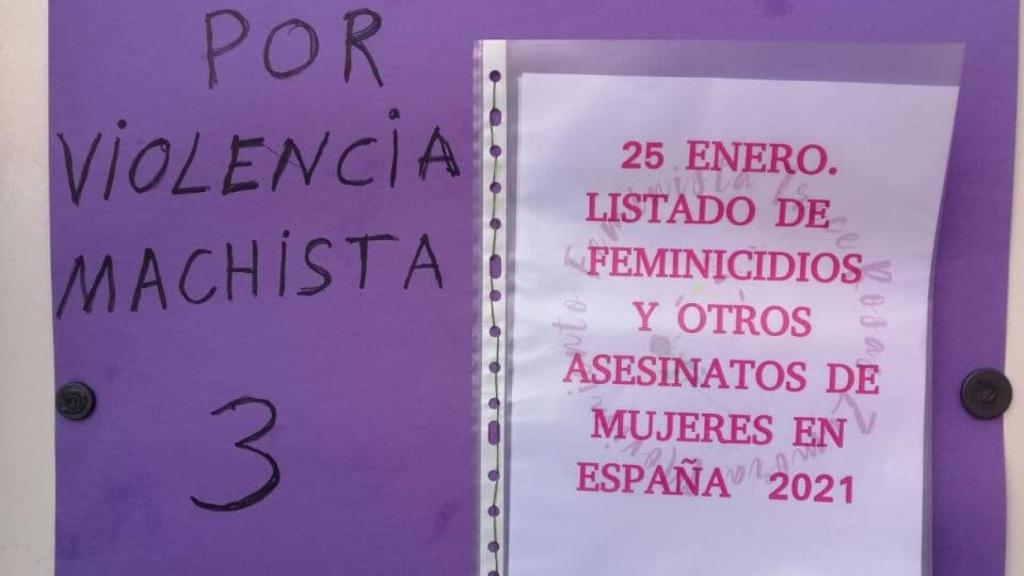 POR
VIOLENCIA
MACHISTA
3
25 ENERO.
LISTADO DE
FEMINICIDIOS
Y OTROS
ASESINATOS DE
MUJERES EN
ESPAÑA 2021